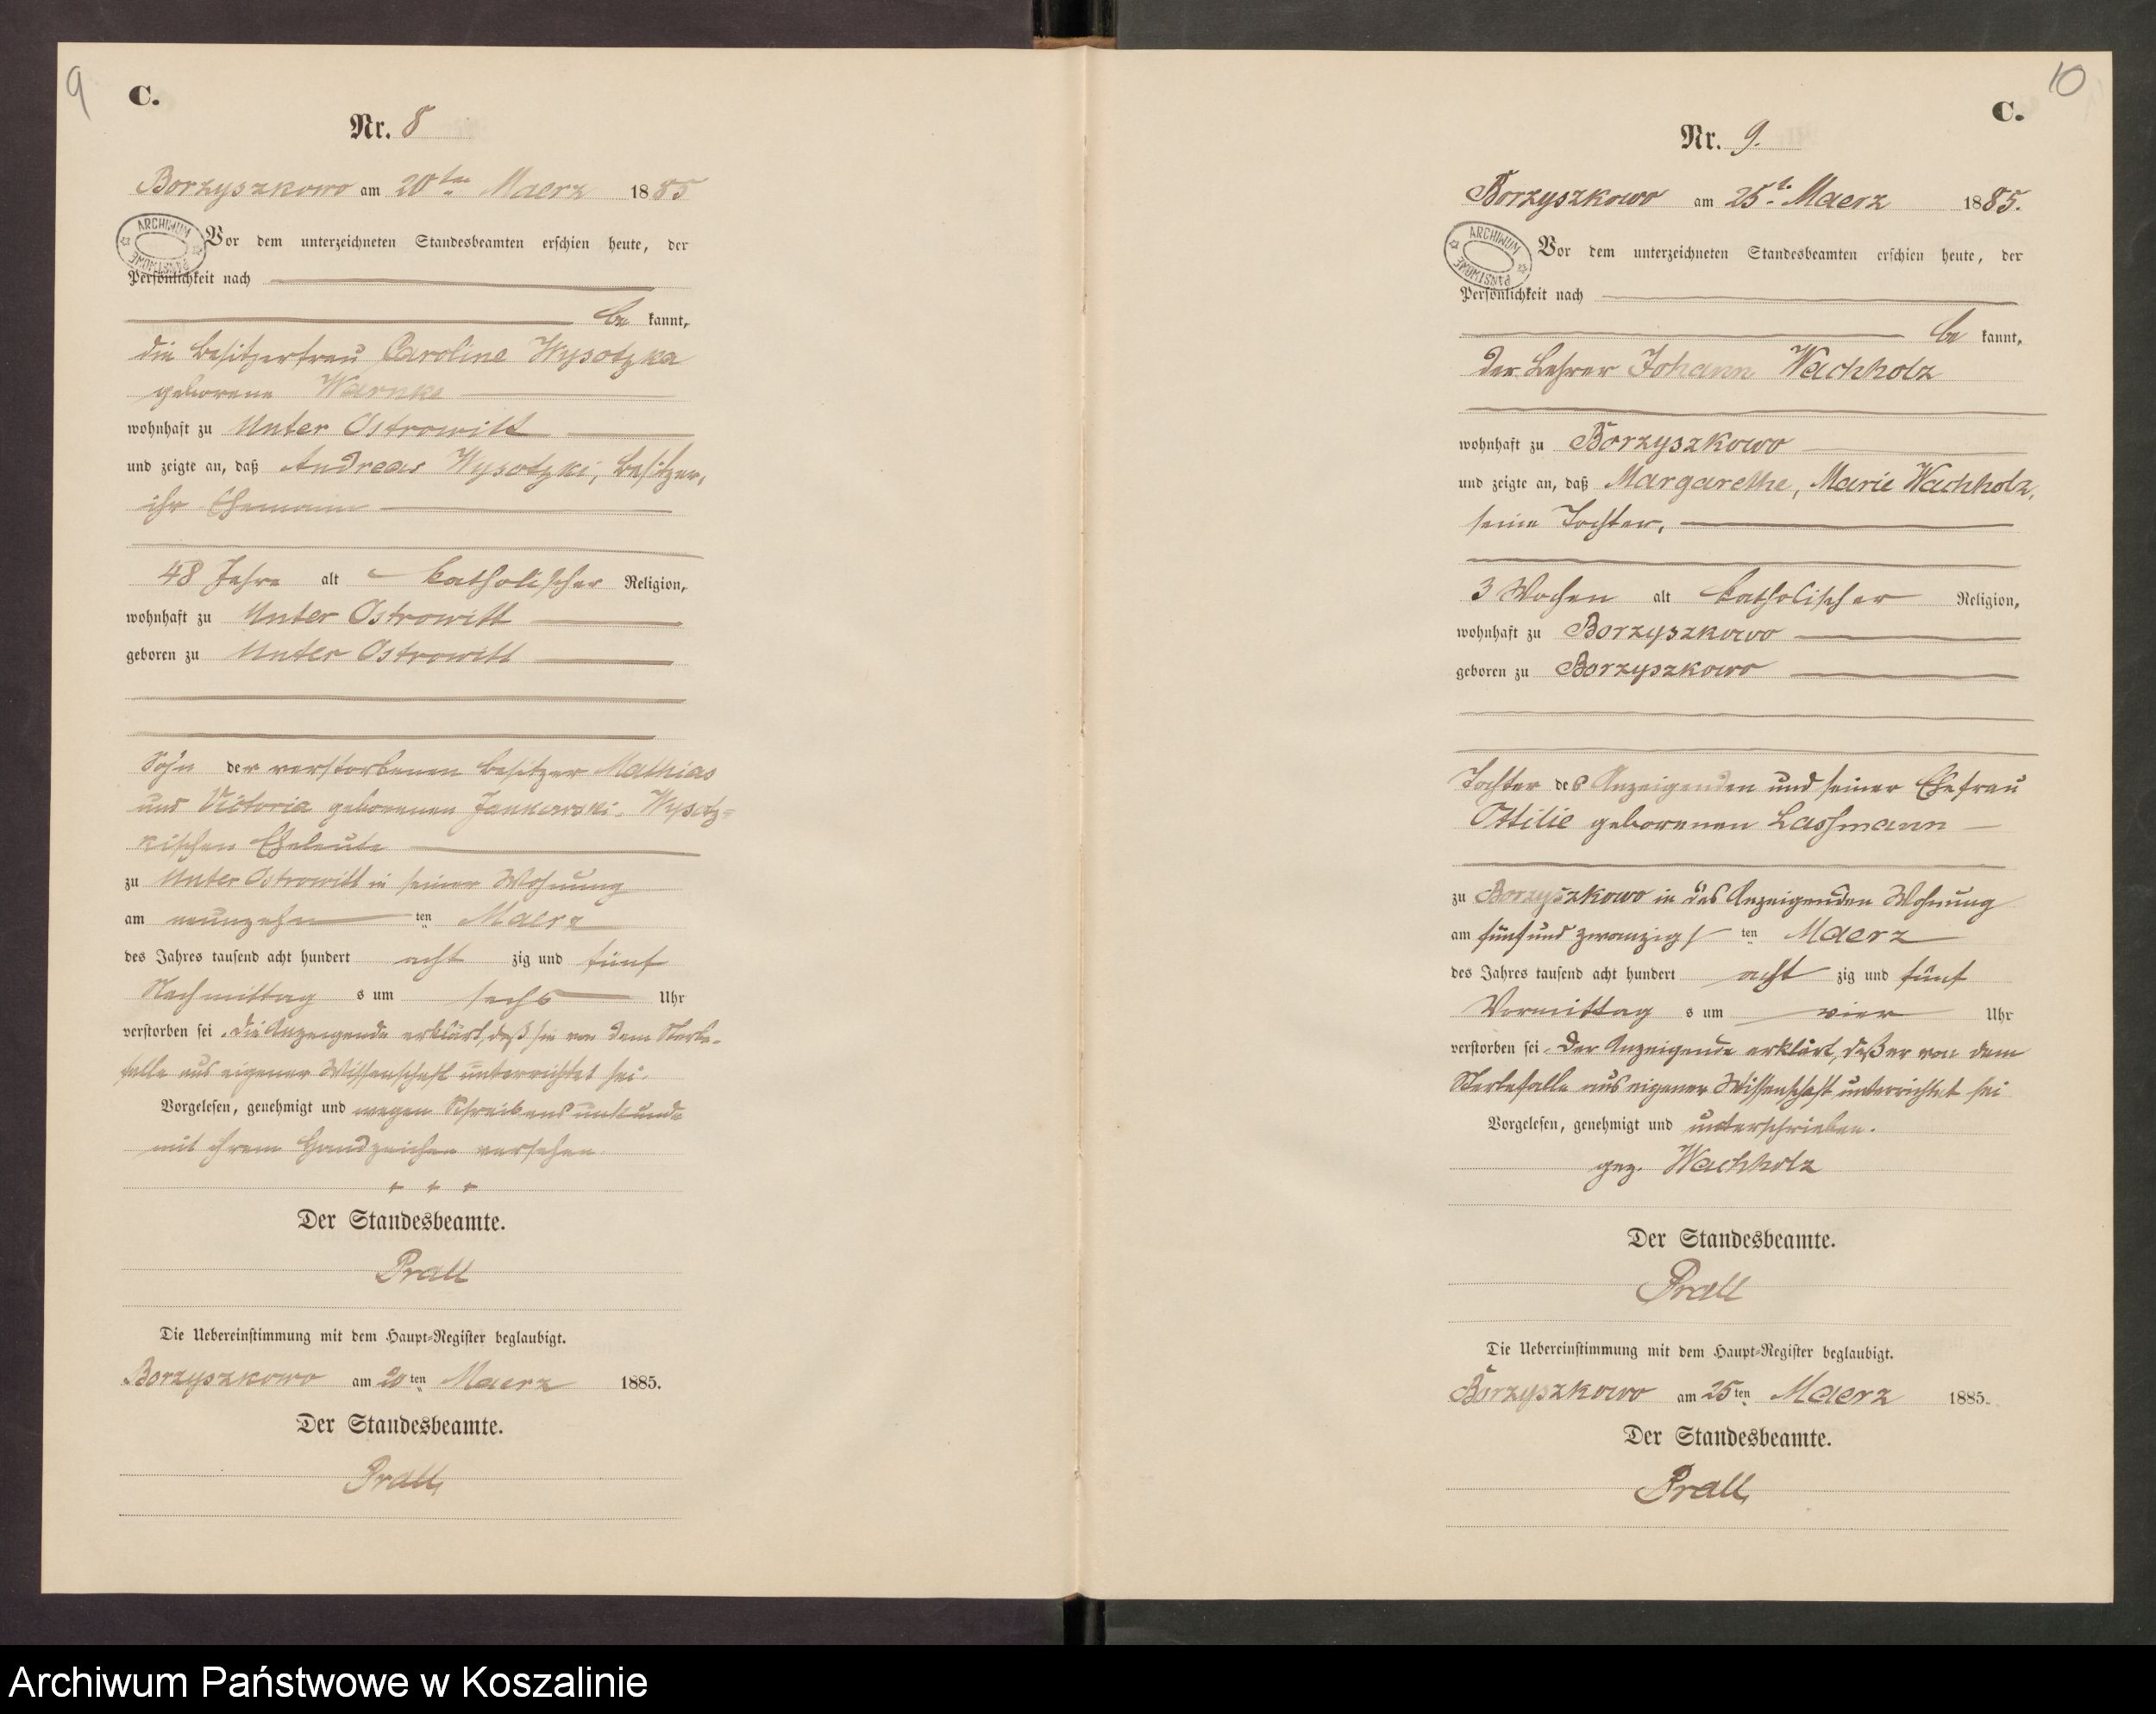 9
C.
Nr. 8
Borzyszkowo am 20ten Maerz 1885
ARCHIWUM PAŃSTWOWE
Vor dem unterzeichneten Standesbeamten erschien heute, der
Persönlichkeit nach
be kannt,
die Besitzerfrau Caroline Wysotzka
geborene Warnke
wohnhaft zu Unter Ostrowitt
und zeigte an, daß Andreas Wysotzki, Besitzer,
ihr Ehemann
48 Jahre alt katholischer Religion,
wohnhaft zu Unter Ostrowitt
geboren zu Unter Ostrowitt
Sohn der verstorbenen Besitzer Mathias
und Victoria geborenen Jankowski-Wysotz=
kischen Eheleute
zu Unter Ostrowitt in seiner Wohnung
am neunzehn ten Maerz
des Jahres tausend acht hundert acht zig und fünf
Nachmittag s um sechs Uhr
verstorben sei. Die Anzeigende erklärt, daß sie von dem Sterbe-
falle aus eigener Wissenschaft unterrichtet sei.
Vorgelesen, genehmigt und wegen Schreibensunkunde
mit ihrem Handzeichen versehen.
+ + +
Der Standesbeamte.
Prall
Die Uebereinstimmung mit dem Haupt-Register beglaubigt.
Borzyszkowo am 20ten Maerz 1885.
Der Standesbeamte.
Prall
10
C.
Nr. 9.
Borzyszkowo am 25t. Maerz 1885.
ARCHIWUM PAŃSTWOWE
Vor dem unterzeichneten Standesbeamten erschien heute, der
Persönlichkeit nach
be kannt,
der Lehrer Johann Wachholz
wohnhaft zu Borzyszkowo
und zeigte an, daß Margarethe, Marie Wachholz,
seine Tochter,
3 Wochen alt katholischer Religion,
wohnhaft zu Borzyszkowo
geboren zu Borzyszkowo
Tochter des Anzeigenden und seiner Ehefrau
Ottilie geborenen Lassmann
zu Borzyszkowo in des Anzeigenden Wohnung
am fünfundzwanzigs ten Maerz
des Jahres tausend acht hundert acht zig und fünf
Vormittag s um vier Uhr
verstorben sei. Der Anzeigende erklärt, daß er von dem
Sterbefalle aus eigener Wissenschaft unterrichtet sei
Vorgelesen, genehmigt und unterschrieben.
gez. Wachholz
Der Standesbeamte.
Prall
Die Uebereinstimmung mit dem Haupt-Register beglaubigt.
Borzyszkowo am 25ten Maerz 1885.
Der Standesbeamte.
Prall
Archiwum Państwowe w Koszalinie